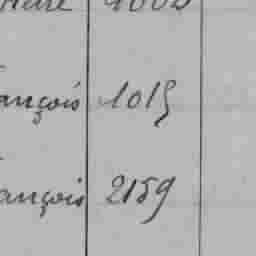 ançois 1015
ançois 2159